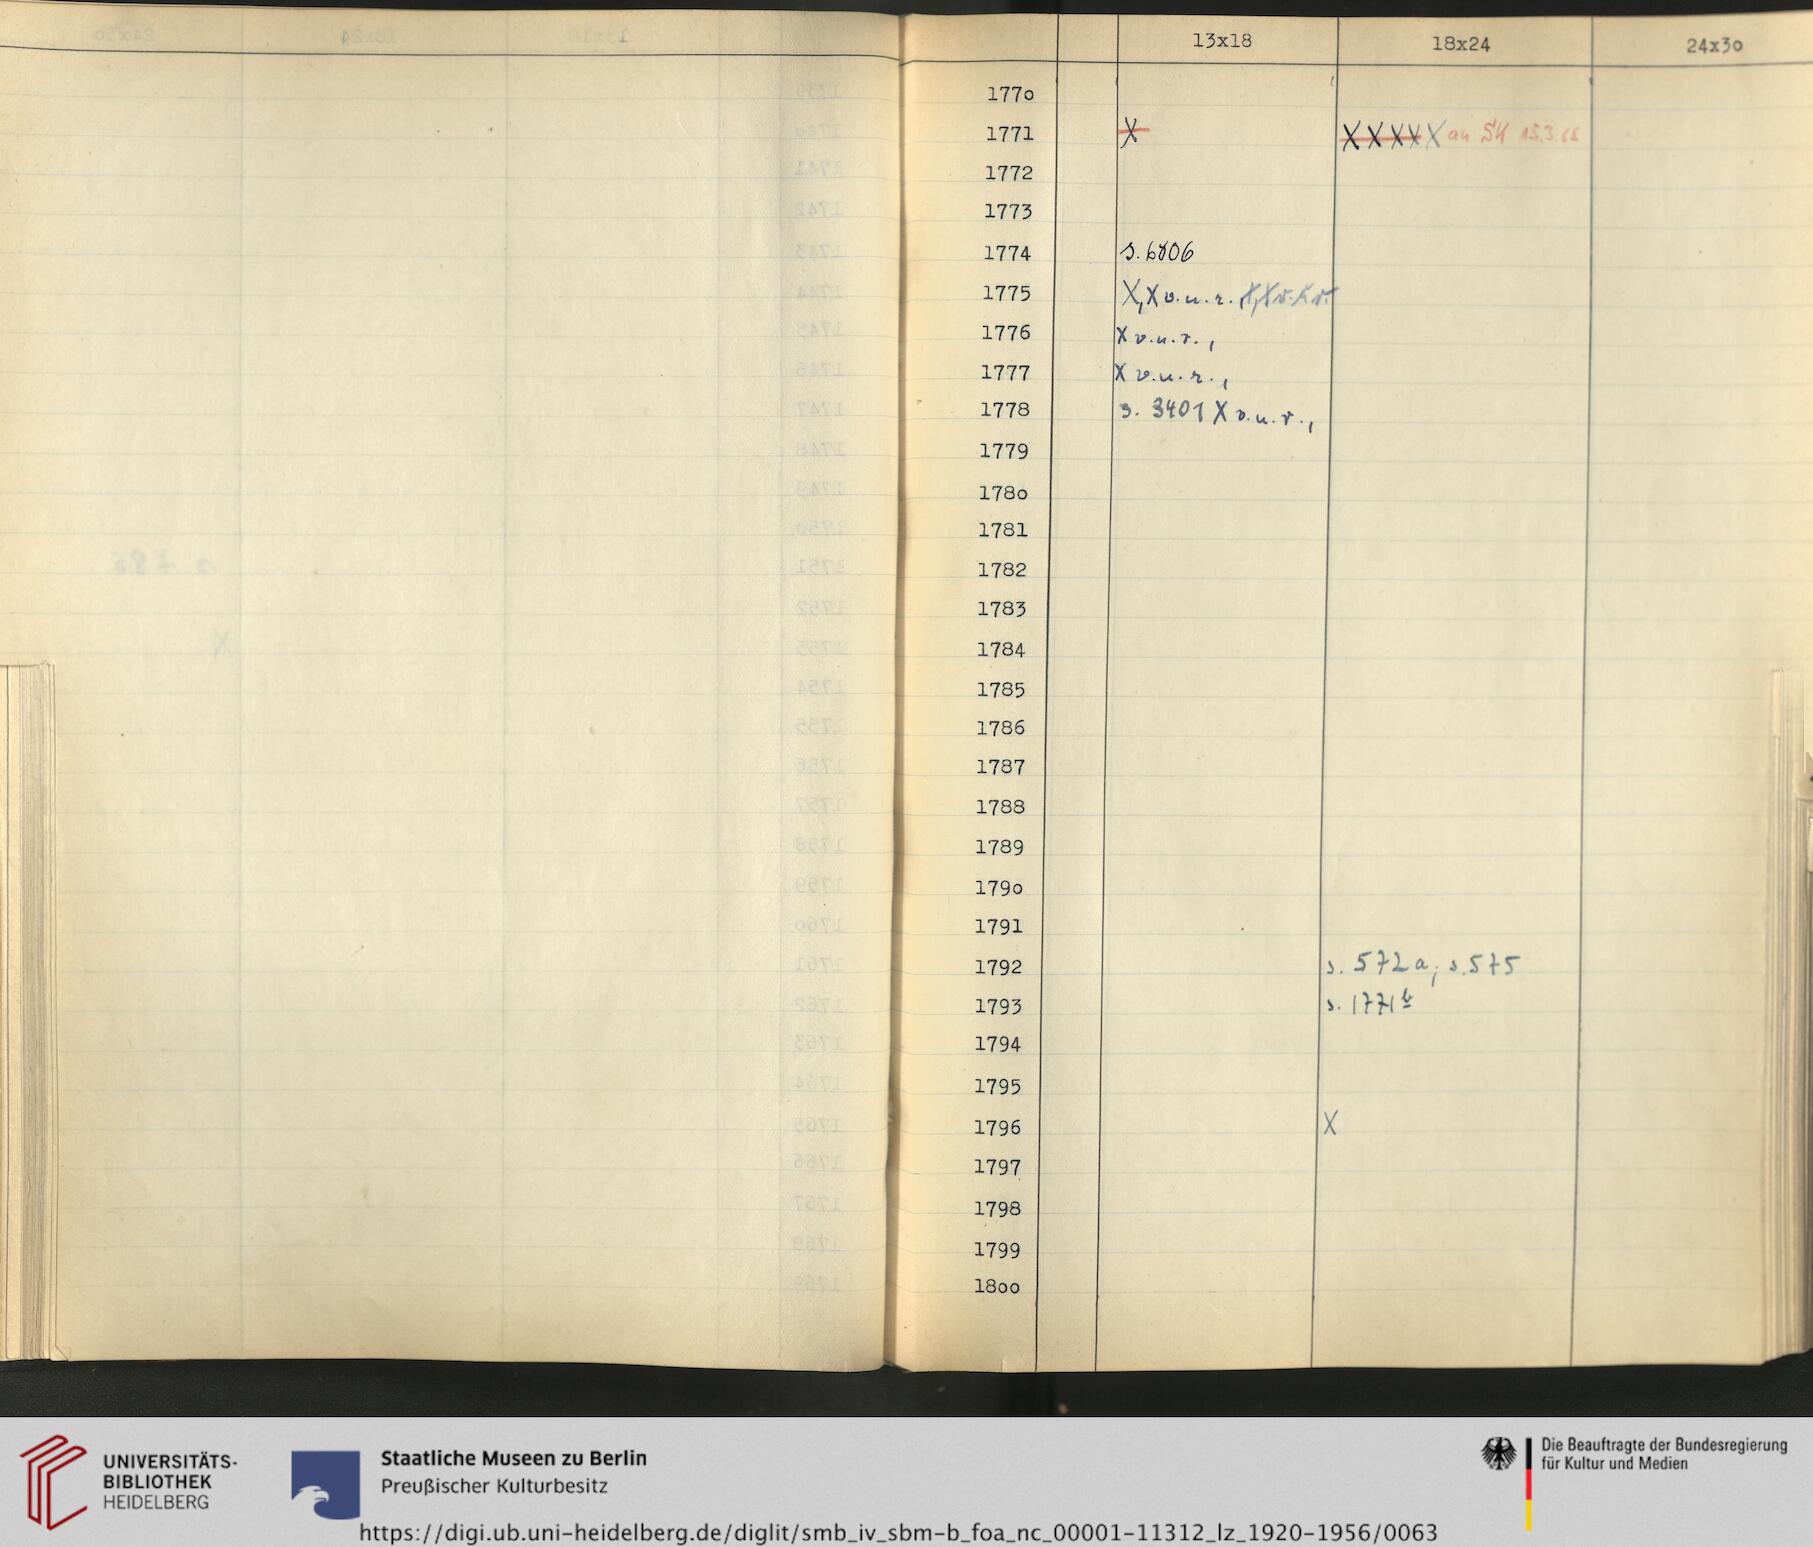 13x18 18x24 24x3o
177o
1771 X X X X X X an SK 15.3.66
1772
1773
1774 s. 6806
1775 X, X v.u.r.
1776 X v.u.r.,
1777 X v.u.r.,
1778 s. 3401 X v.u.r.,
1779
178o
1781
1782
1783
1784
1785
1786
1787
1788
1789
179o
1791
1792 s. 572a; s. 575
1793 s. 1771b
1794
1795
1796 X
1797
1798
1799
18oo
UNIVERSITÄTS-
BIBLIOTHEK
HEIDELBERG
Staatliche Museen zu Berlin
Preußischer Kulturbesitz
Die Beauftragte der Bundesregierung
für Kultur und Medien
https://digi.ub.uni-heidelberg.de/diglit/smb_iv_sbm-b_foa_nc_00001-11312_lz_1920-1956/0063